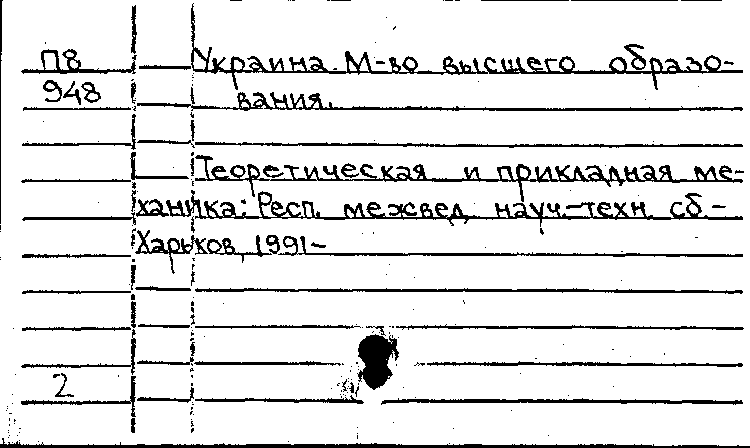 П8 Украина. М-во высшего образо-
948 вания.
Теоретическая и прикладная ме-
ханика: Респ. межвед. науч.-техн. сб.-
Харьков, 1991-
2